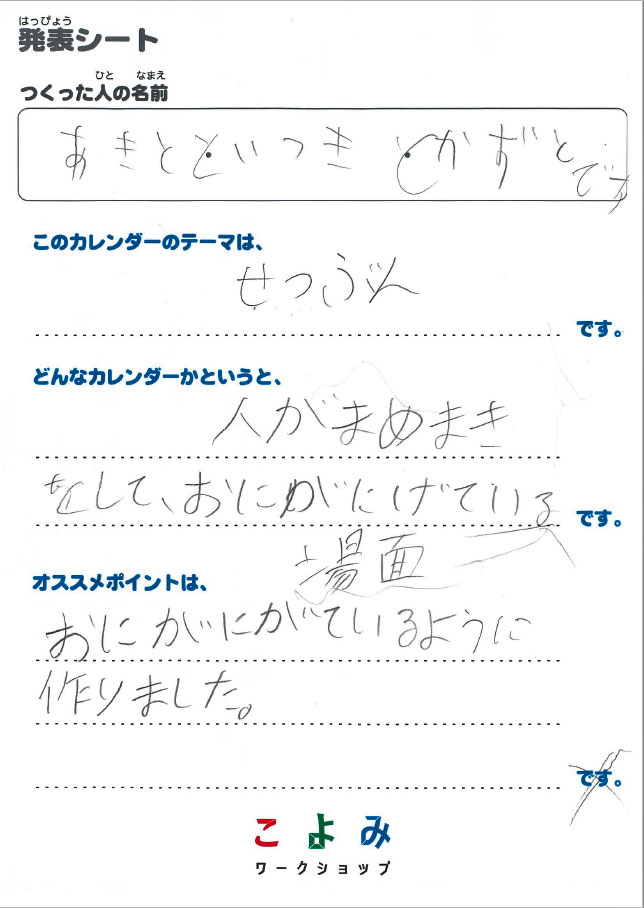 はっぴょう
発表シート
ひと なまえ
つくった人の名前
あきとといつきとかずとです
このカレンダーのテーマは、
せつぶん
です。
どんなカレンダーかというと、
人がまめまき
をして、おにがにげている
です。
場面
オススメポイントは、
おにがにがているように
作りました。
です。
こよみ
ワークショップ